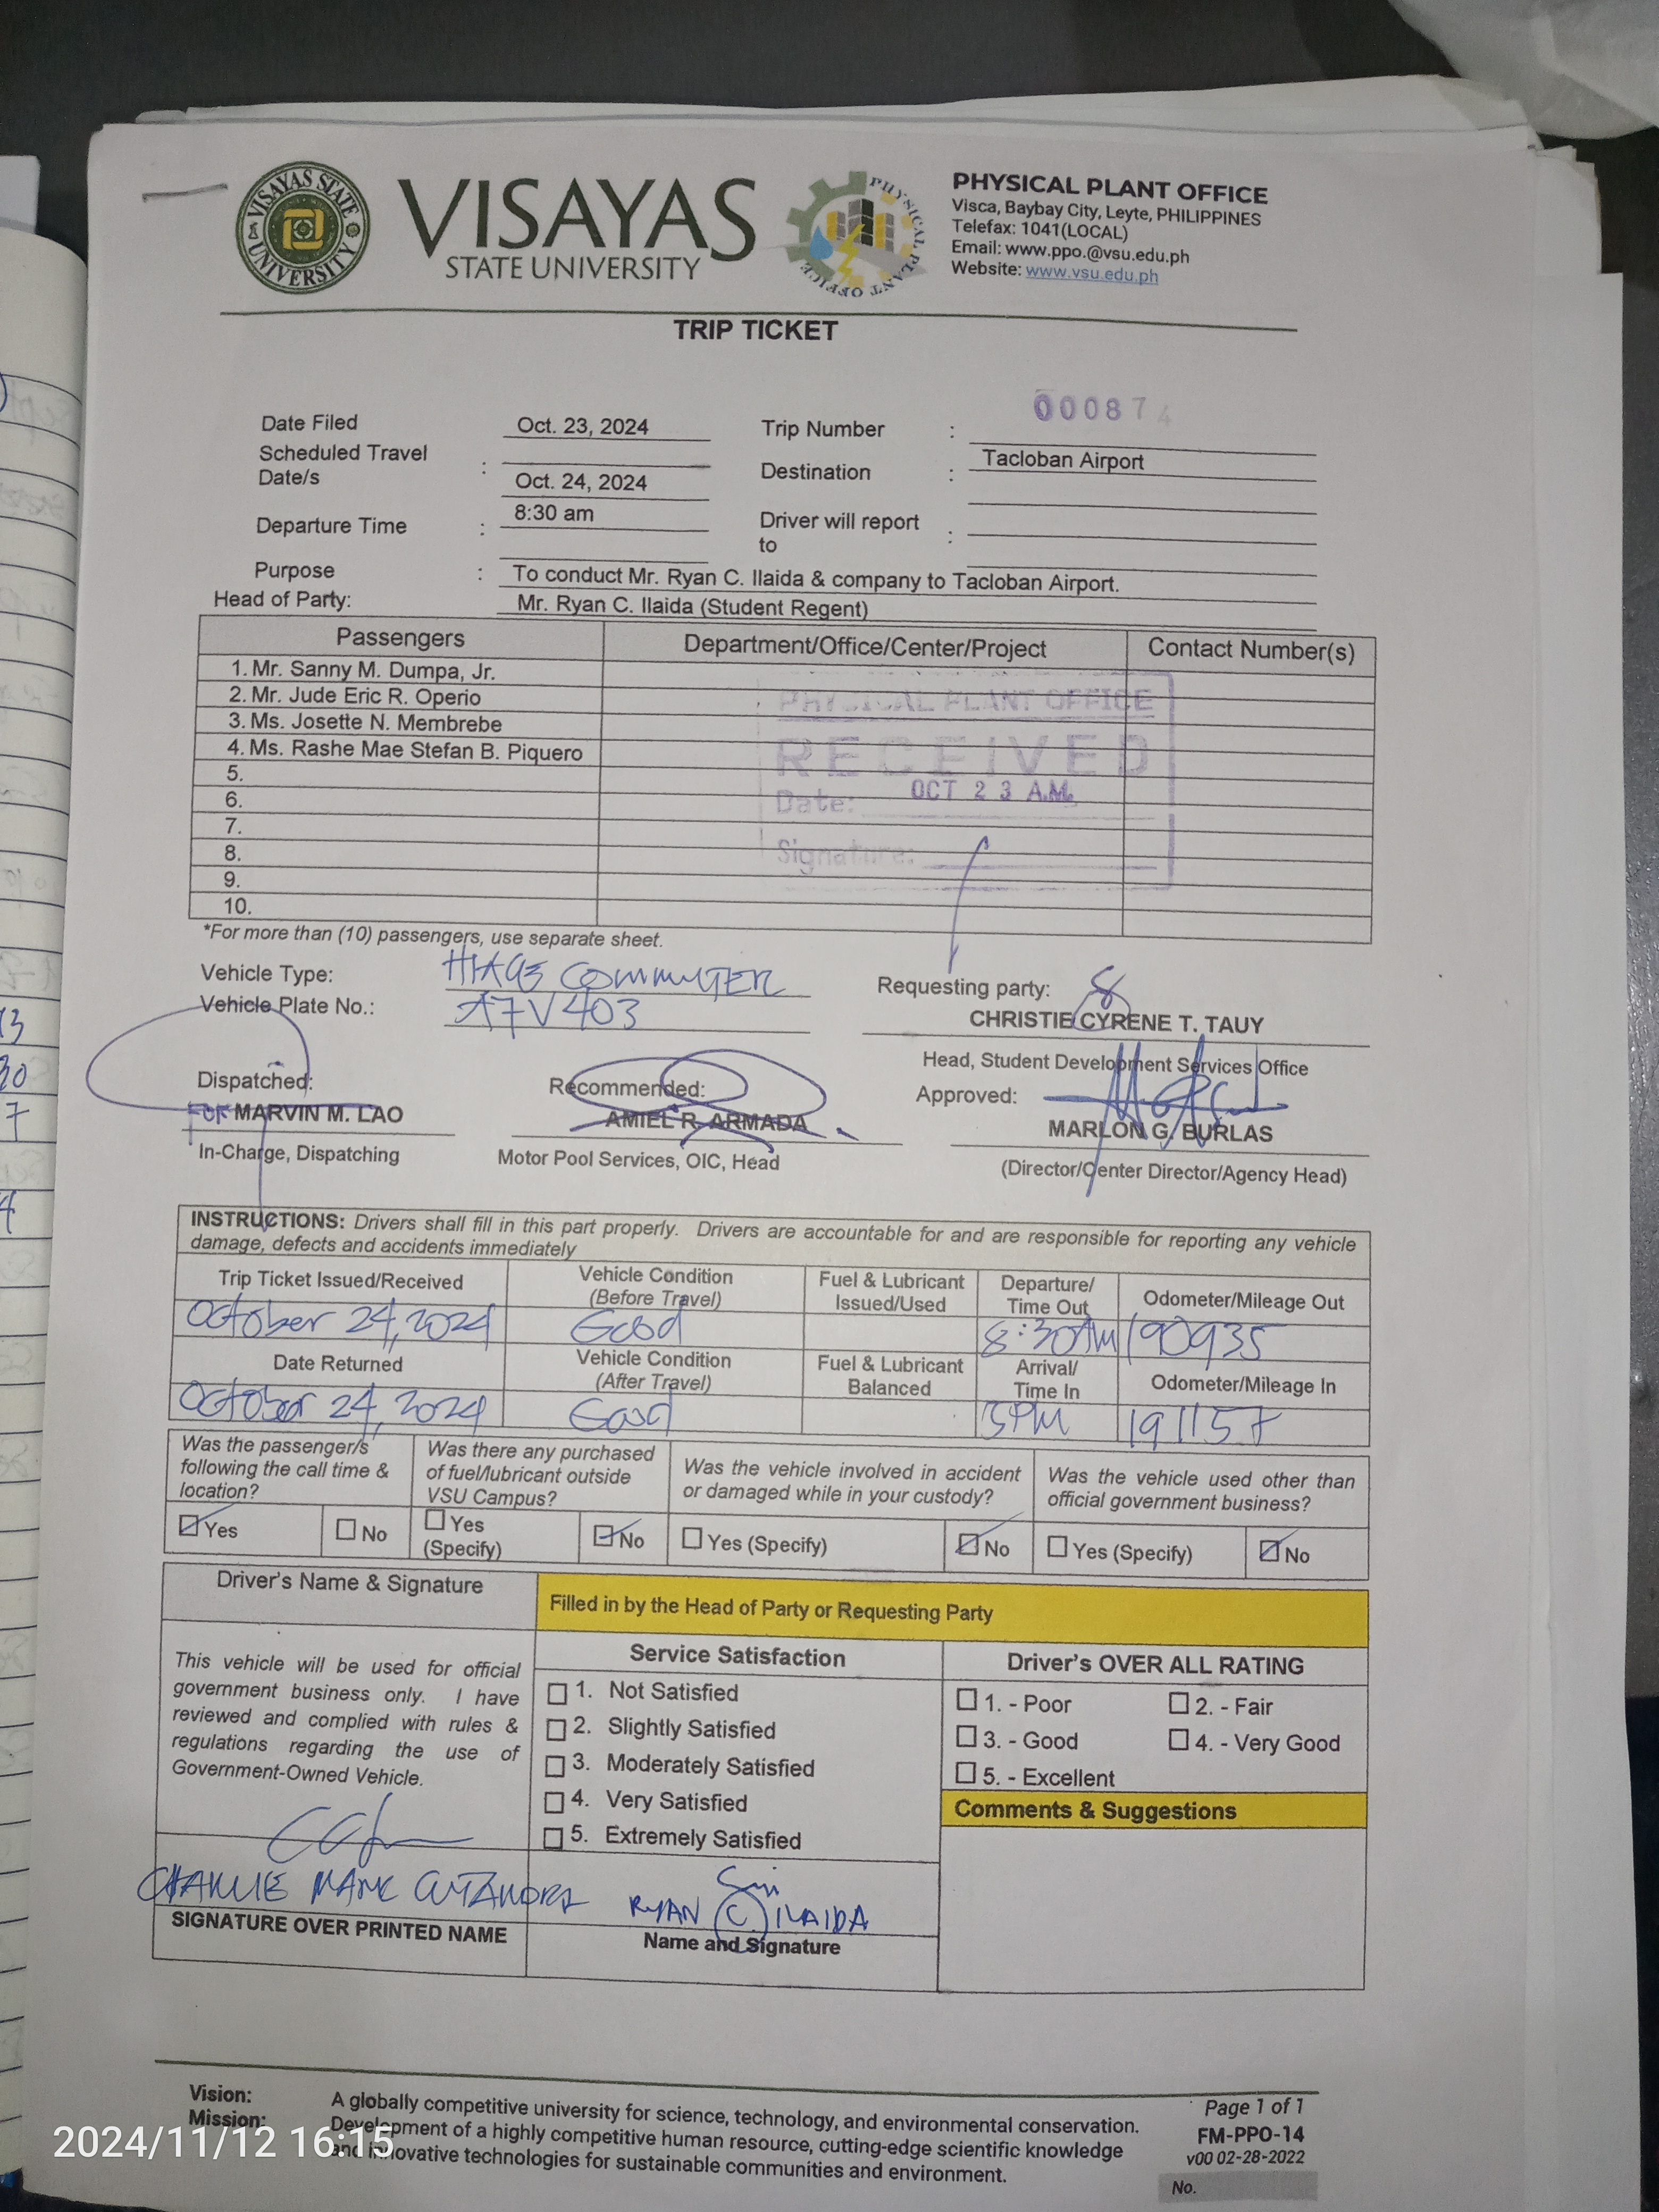 VISAYAS STATE UNIVERSITY
VISAYAS
STATE UNIVERSITY
PHYSICAL PLANT OFFICE
PHYSICAL PLANT OFFICE
Visca, Baybay City, Leyte, PHILIPPINES
Telefax: 1041(LOCAL)
Email: www.ppo.@vsu.edu.ph
Website: www.vsu.edu.ph
TRIP TICKET
000874
Date Filed Oct. 23, 2024 Trip Number :
Scheduled Travel Date/s : Oct. 24, 2024 Destination : Tacloban Airport
Departure Time : 8:30 am Driver will report to :
Purpose : To conduct Mr. Ryan C. Ilaida & company to Tacloban Airport.
Head of Party: Mr. Ryan C. Ilaida (Student Regent)
Passengers Department/Office/Center/Project Contact Number(s)
1. Mr. Sanny M. Dumpa, Jr.
2. Mr. Jude Eric R. Operio
3. Ms. Josette N. Membrebe
4. Ms. Rashe Mae Stefan B. Piquero
5.
6.
7.
8.
9.
10.
PHYSICAL PLANT OFFICE
RECEIVED
Date: OCT 23 A.M.
Signature:
*For more than (10) passengers, use separate sheet.
Vehicle Type: HIACE COMMUTER
Vehicle Plate No.: A7V403
Requesting party:
CHRISTIE CYRENE T. TAUY
Head, Student Development Services Office
Dispatched: Recommended: Approved:
FOR MARVIN M. LAO AMIEL R. ARMADA MARLON G. BURLAS
In-Charge, Dispatching Motor Pool Services, OIC, Head (Director/Center Director/Agency Head)
INSTRUCTIONS: Drivers shall fill in this part properly. Drivers are accountable for and are responsible for reporting any vehicle
damage, defects and accidents immediately
Trip Ticket Issued/Received Vehicle Condition (Before Travel) Fuel & Lubricant Issued/Used Departure/ Time Out Odometer/Mileage Out
October 24, 2024 Good 8:30AM 190935
Date Returned Vehicle Condition (After Travel) Fuel & Lubricant Balanced Arrival/ Time In Odometer/Mileage In
October 24, 2024 Good 3PM 191157
Was the passenger/s following the call time & location?
Was there any purchased of fuel/lubricant outside VSU Campus?
Was the vehicle involved in accident or damaged while in your custody?
Was the vehicle used other than official government business?
Yes No Yes (Specify) No Yes (Specify) No Yes (Specify) No
Driver's Name & Signature
Filled in by the Head of Party or Requesting Party
This vehicle will be used for official
government business only. I have
reviewed and complied with rules &
regulations regarding the use of
Government-Owned Vehicle.
Service Satisfaction
1. Not Satisfied
2. Slightly Satisfied
3. Moderately Satisfied
4. Very Satisfied
5. Extremely Satisfied
Driver's OVER ALL RATING
1. - Poor 2. - Fair
3. - Good 4. - Very Good
5. - Excellent
Comments & Suggestions
CHARLIE MARK
RYAN C. ILAIDA
SIGNATURE OVER PRINTED NAME
Name and Signature
Vision: A globally competitive university for science, technology, and environmental conservation.
Mission: Development of a highly competitive human resource, cutting-edge scientific knowledge
and innovative technologies for sustainable communities and environment.
Page 1 of 1
FM-PPO-14
v00 02-28-2022
No.
2024/11/12 16:15